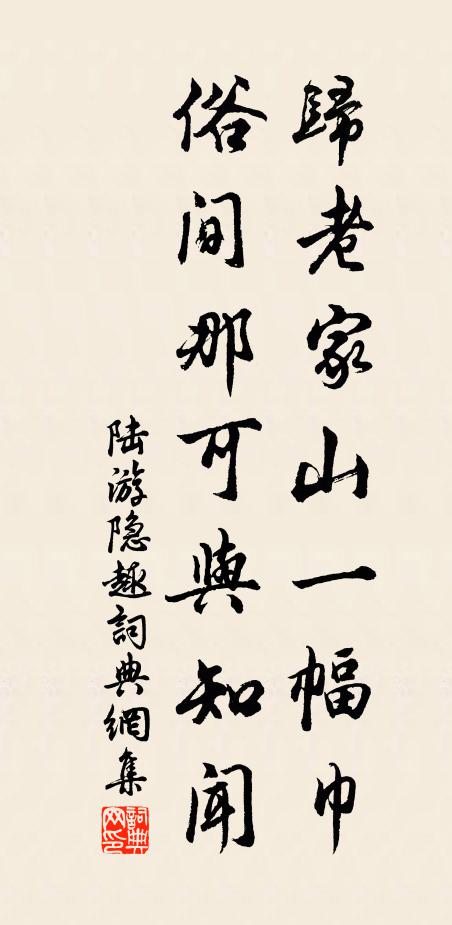 歸老家山一幅巾
俗间那可與知闻
陆游隐趣詞典網集
詞典网印